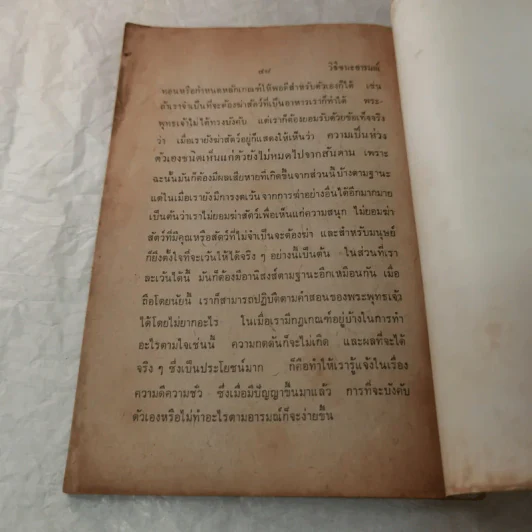 ๗๗ วิธีชนะอารมณ์
ทอนหรือกำหนดหลักเกณฑ์ให้พอดีสำหรับตัวเองก็ได้ เช่น
ถ้าเราจำเป็นที่จะต้องฆ่าสัตว์ที่เป็นอาหารเราก็ทำได้ พระ-
พุทธเจ้าไม่ได้ทรงบังคับ แต่เราก็ต้องยอมรับด้วยข้อเท็จจริง
ว่า เมื่อเรายังฆ่าสัตว์อยู่ก็แสดงให้เห็นว่า ความเป็นห่วง
ตัวเองชนิดเห็นแก่ตัวยังไม่หมดไปจากสันดาน เพราะ
ฉะนั้นมันก็ต้องมีผลเสียหายที่เกิดขึ้นจากส่วนนี้บ้างตามฐานะ
แต่ในเมื่อเรายังมีการงดเว้นจากการฆ่าอย่างอื่นได้อีกมากมาย
เป็นต้นว่าเราไม่ยอมฆ่าสัตว์เพื่อเห็นแก่ความสนุก ไม่ยอมฆ่า
สัตว์ที่มีคุณหรือสัตว์ที่ไม่จำเป็นจะต้องฆ่า และสำหรับมนุษย์
ก็ยิ่งตั้งใจที่จะเว้นให้ได้จริง ๆ อย่างนี้เป็นต้น ในส่วนที่เรา
ละเว้นได้นี้ มันก็ต้องมีอานิสงส์ตามฐานะอีกเหมือนกัน เมื่อ
ถือโดยนัยนี้ เราก็สามารถปฏิบัติตามคำสอนของพระพุทธเจ้า
ได้โดยไม่ยากอะไร ในเมื่อเรามีกฎเกณฑ์อยู่บ้างในการทำ
อะไรตามใจเช่นนี้ ความกดดันก็จะไม่เกิด และผลที่จะได้
จริง ๆ ซึ่งเป็นประโยชน์มาก ก็คือทำให้เรารู้แจ้งในเรื่อง
ความดีความชั่ว ซึ่งเมื่อมีปัญญาขึ้นมาแล้ว การที่จะบังคับ
ตัวเองหรือไม่ทำอะไรตามอารมณ์ก็จะง่ายขึ้น